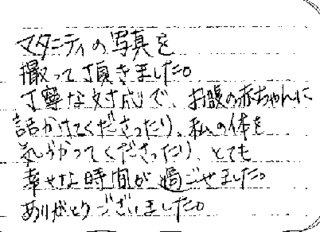 マタニティの写真を
撮って頂きました。
丁寧な対応で、お腹の赤ちゃんに
話かけてくださったり、私の体を
気づかってくださったり、とても
幸せな時間が過ごせました。
ありがとうございました。